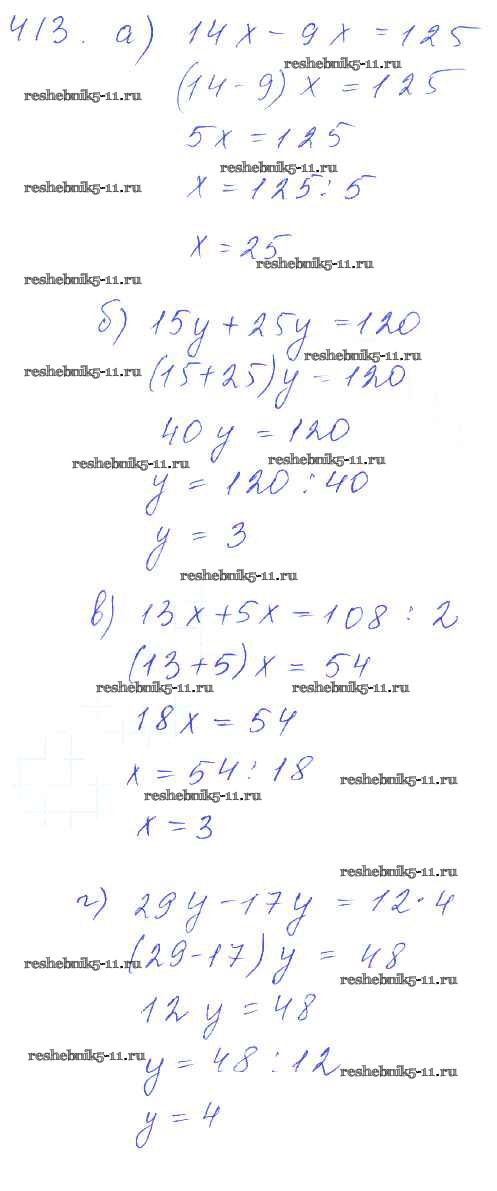 413. а) 14x - 9x = 125
reshebnik5-11.ru
(14 - 9) x = 125
reshebnik5-11.ru
5x = 125
reshebnik5-11.ru
x = 125 : 5
reshebnik5-11.ru
x = 25
reshebnik5-11.ru
reshebnik5-11.ru
б) 15y + 25y = 120
reshebnik5-11.ru
(15+25)y = 120
reshebnik5-11.ru
40 y = 120
reshebnik5-11.ru reshebnik5-11.ru
y = 120 : 40
y = 3
reshebnik5-11.ru
в) 13x + 5x = 108 : 2
(13+5) x = 54
reshebnik5-11.ru reshebnik5-11.ru
18x = 54
x = 54 : 18
reshebnik5-11.ru
reshebnik5-11.ru
x = 3
reshebnik5-11.ru
г) 29y - 17y = 12 · 4
(29-17) y = 48
reshebnik5-11.ru
reshebnik5-11.ru
12 y = 48
reshebnik5-11.ru
y = 48 : 12
reshebnik5-11.ru
y = 4